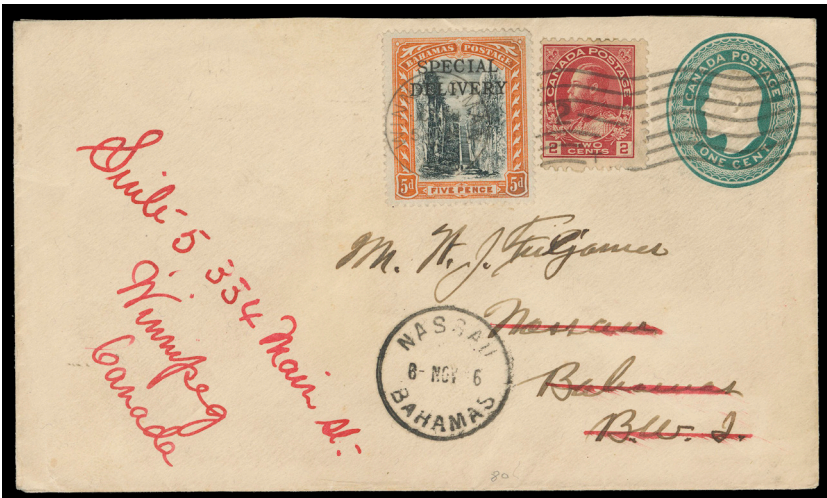 BAHAMAS POSTAGE
SPECIAL
DELIVERY
5d FIVE PENCE 5d
CANADA POSTAGE
2 TWO CENTS 2
CANADA POSTAGE
ONE CENT
Suite 5 334 Main St.
Winnipeg
Canada
M. W. J.
Nassau
Bahamas
B.W.I.
NASSAU
8- NOV 6
BAHAMAS
80